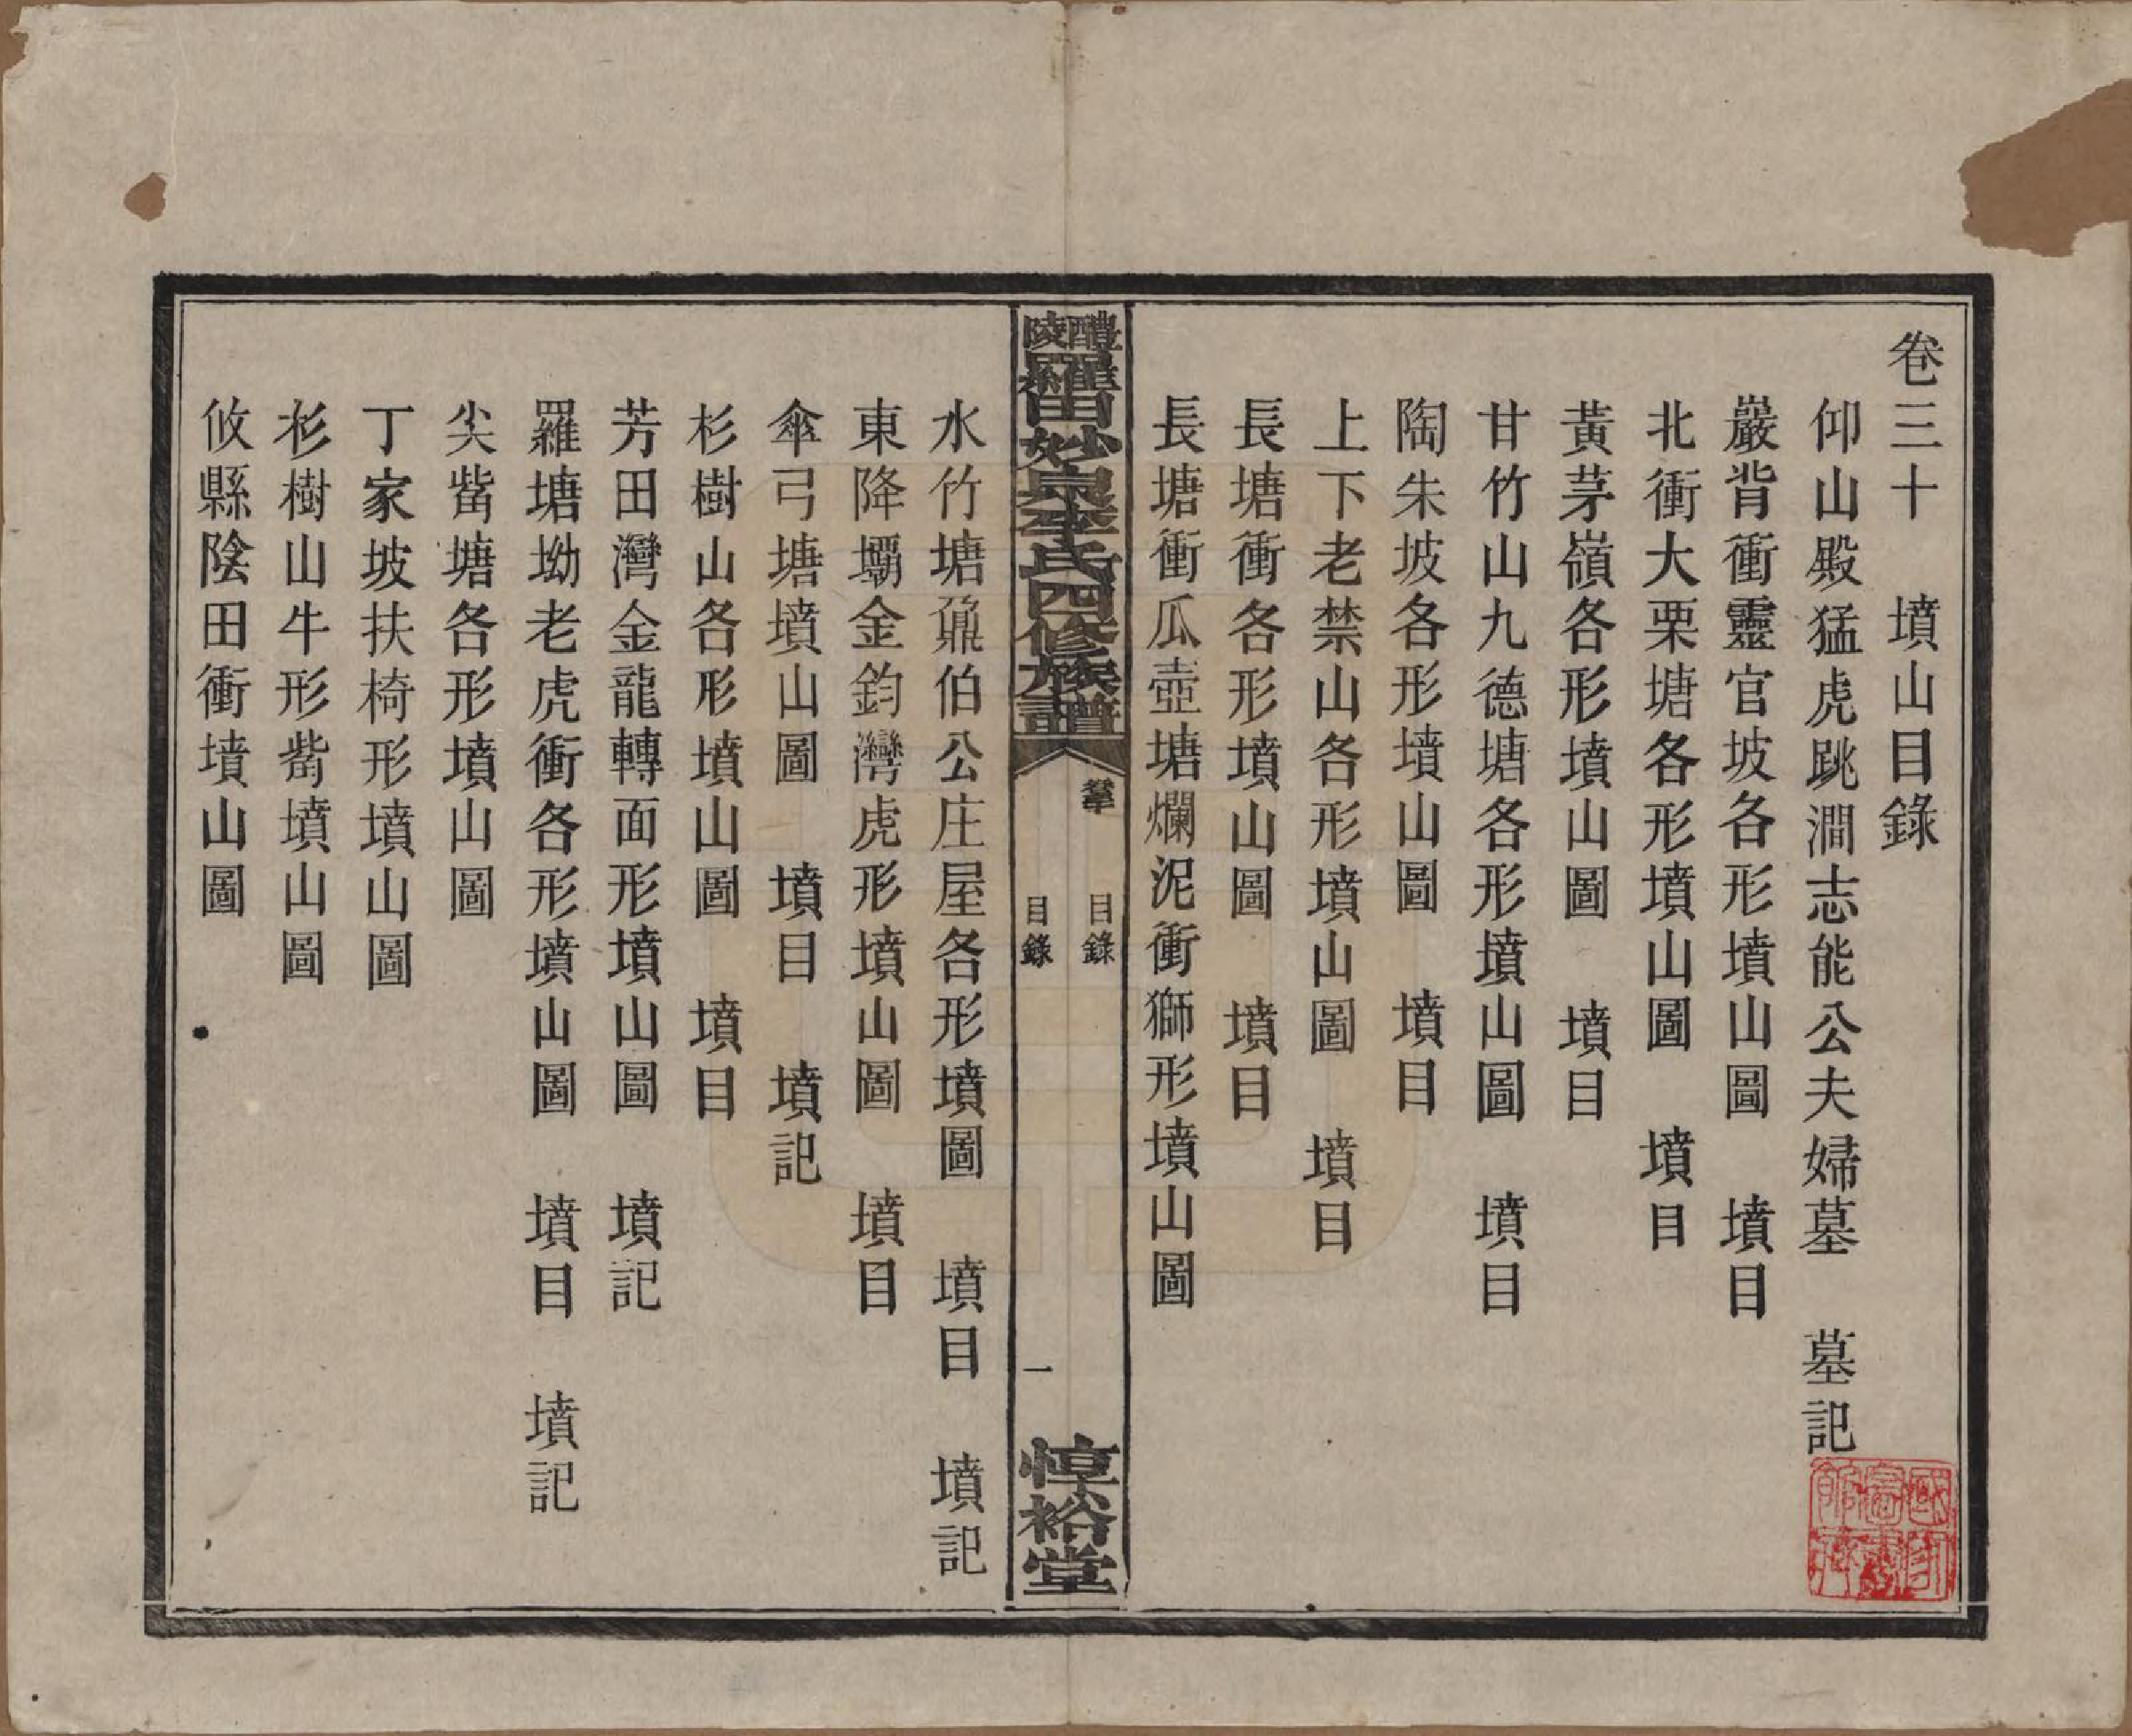 卷三十　墳山目錄
仰山殿猛虎跳澗志能公夫婦墓　墓記
巖背衝靈官坡各形墳山圖　墳目
北衝大栗塘各形墳山圖　墳目
黃茅嶺各形墳山圖　墳目
甘竹山九德塘各形墳山圖　墳目
陶朱坡各形墳山圖　墳目
上下老禁山各形墳山圖　墳目
長塘衝各形墳山圖　墳目
長塘衝瓜壺塘爛泥衝獅形墳山圖
醴陵羅田妙泉李氏四修族譜
卷三十　目錄
目錄　一
惇裕堂
水竹塘鼐伯公庄屋各形墳圖　墳目　墳記
東降壩金鈞灣虎形墳山圖　墳目
傘弓塘墳山圖　墳目　墳記
杉樹山各形墳山圖　墳目
芳田灣金龍轉面形墳山圖　墳記
羅塘坳老虎衝各形墳山圖　墳目　墳記
尖觜塘各形墳山圖
丁家坡扶椅形墳山圖
杉樹山牛形觜墳山圖
攸縣陰田衝墳山圖